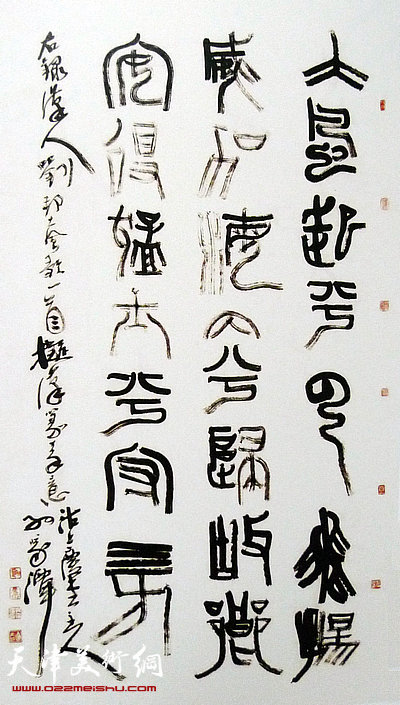 大風起兮云飛揚
威加海内兮歸故鄉
安得猛士兮守四方
右録漢人劉邦大風歌一首擬漢篆筆意
孙家潭
天津美術網
www.022meishu.com